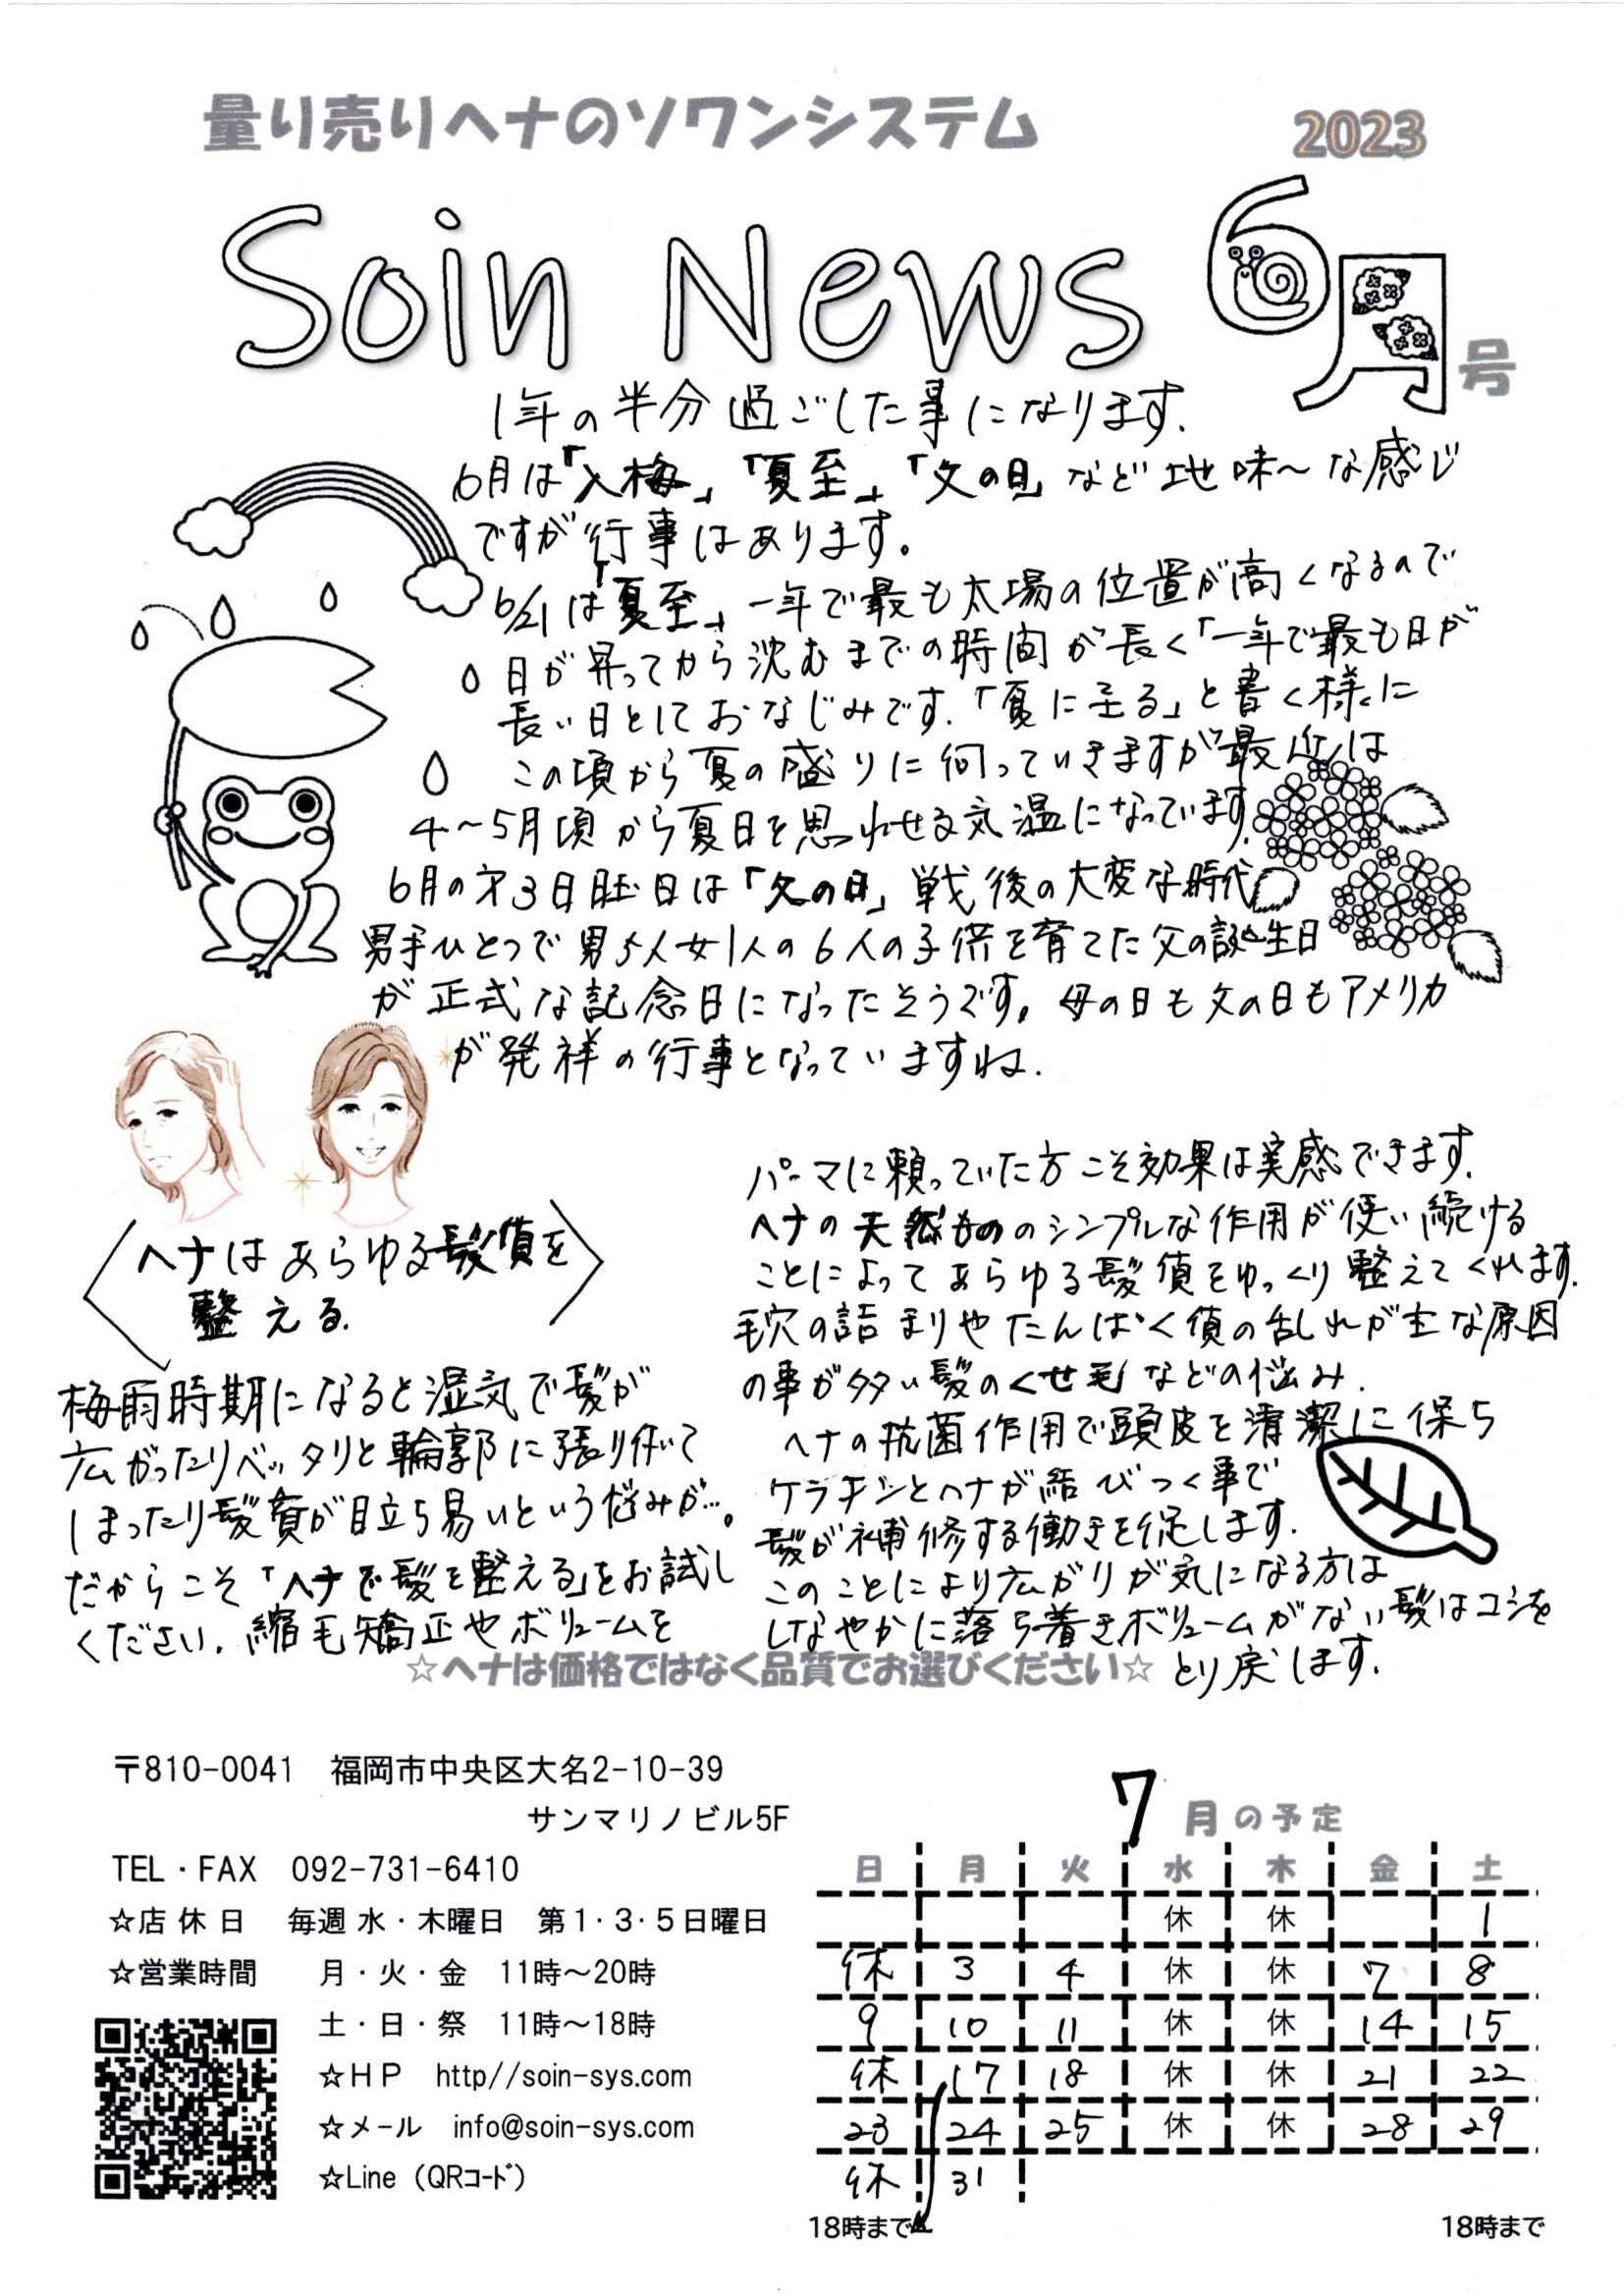 量り売りヘナのソワンシステム
2023
Soin News 6月号
1年の半分過ごした事になります.
6月は「入梅」「夏至」「父の日」など地味〜な感じ
ですが行事はあります。
6/21は「夏至」一年で最も太陽の位置が高くなるので
日が昇ってから沈むまでの時間が長く「一年で最も日が
長い日としておなじみです.「夏に至る」と書く様に
この頃から夏の盛りに向っていきますが最近は
4〜5月頃から夏日を思わせる気温になっています.
6月の才3日曜日は「父の日」戦後の大変な時代
男手ひとつで男5人女1人の6人の子供を育てた父の誕生日
が正式な記念日になったそうです。母の日も父の日もアメリカ
が発祥の行事となっていますね.
〈ヘナはあらゆる髪質を
整える.〉
梅雨時期になると湿気で髪が
広がったりベッタリと輪郭に張り付いて
しまったり髪質が目立ち易いという悩みが…。
だからこそ「ヘナで髪を整える」をお試し
ください.縮毛矯正やボリュームを
パーマに頼っていた方こそ効果は実感できます.
ヘナの天然もののシンプルな作用が使い続ける
ことによってあらゆる髪質をゆっくり整えてくれます.
毛穴の詰まりやたんぱく質の乱れが主な原因
の事が多い髪のくせ毛などの悩み.
ヘナの抗菌作用で頭皮を清潔に保ち
ケラチンとヘナが結びつく事で
髪が補修する働きを促します.
このことにより広がりが気になる方は
しなやかに落ち着きボリュームがない髪はコシを
とり戻します.
☆ヘナは価格ではなく品質でお選びください☆
〒810-0041 福岡市中央区大名2-10-39
サンマリノビル5F
TEL・FAX 092-731-6410
☆店 休 日 毎週 水・木曜日 第1・3・5日曜日
☆営業時間 月・火・金 11時〜20時
土・日・祭 11時〜18時
☆ＨＰ http//soin-sys.com
☆メール info@soin-sys.com
☆Line（QRｺｰﾄﾞ）
7月の予定
日 月 火 水 木 金 土
休 休 1
休 3 4 休 休 7 8
9 10 11 休 休 14 15
休 17 18 休 休 21 22
23 24 25 休 休 28 29
休 31
18時まで 18時まで